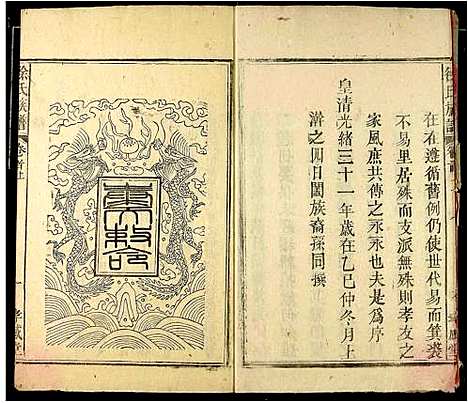 在在遵循舊例仍使世代易而箕裘
不易里居殊而支派無殊則孝友之
家風庶共傳之永永也夫是為序
皇清光緒三十一年歲在乙巳仲冬月上
濟之四日闔族裔孫同撰
徐氏族譜
卷首上
奉敕